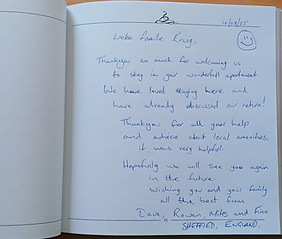 14/08/25
Liebe familie Krug,
Thankyou so much for welcoming us
to stay in your wonderfull apartment
We have loved staying here and
have already discussed our return!
Thankyou for all your help
and advice about local amenities,
it was very helpful.
Hopefully we will see you again
in the future
wishing you and your family
all the best from
Dave, Rowan, Miles and Finn
SHEFFIELD, ENGLAND.